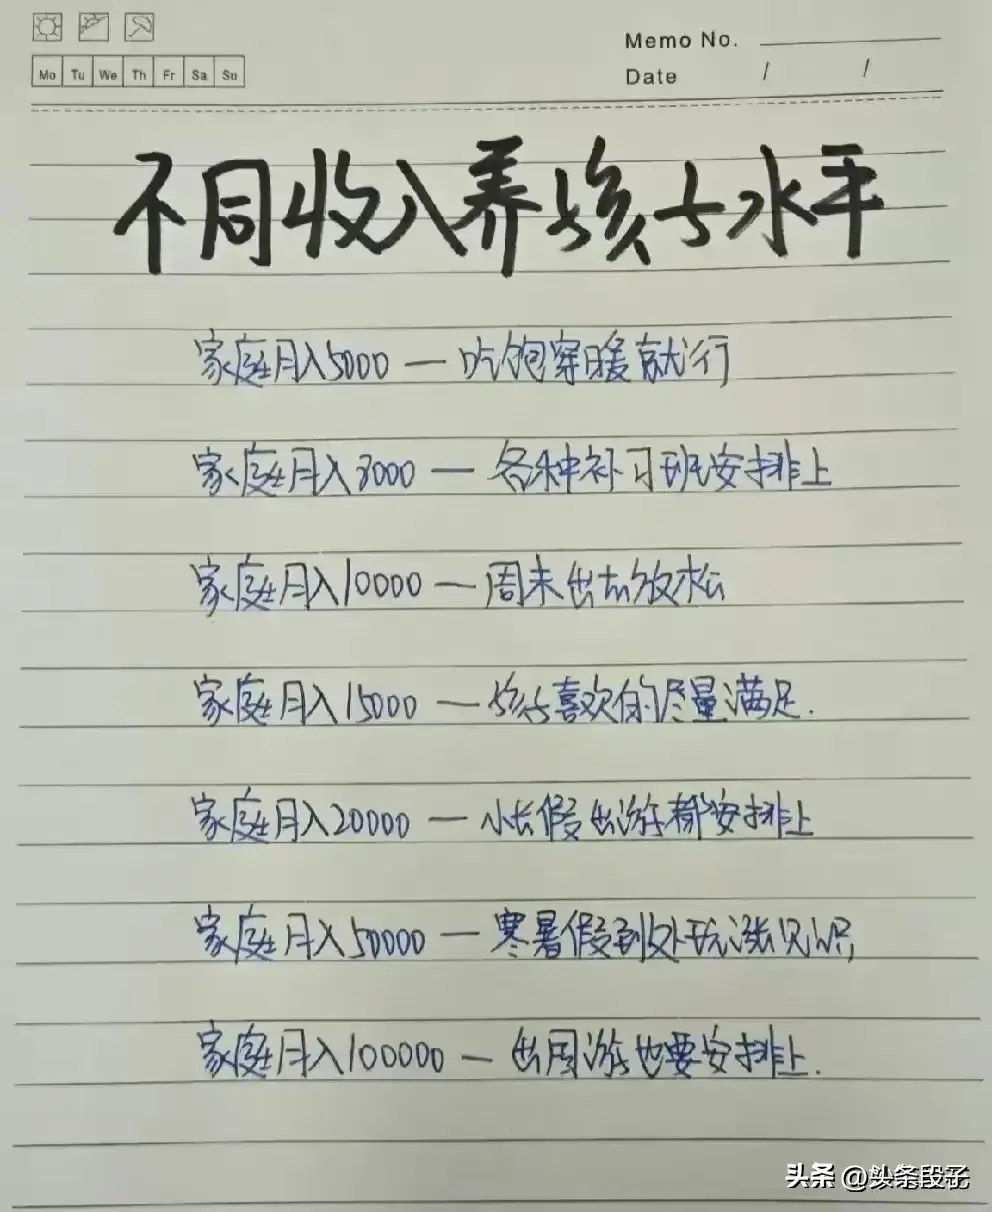 Memo No.
Mo Tu We Th Fr Sa Su
Date / /
不同收入养孩子水平
家庭月入5000 — 吃饱穿暖就行
家庭月入8000 — 各种补习班安排上
家庭月入10000 — 周末出去放松
家庭月入15000 — 孩子喜欢的尽量满足.
家庭月入20000 — 小长假出游都安排上
家庭月入50000 — 寒暑假到处玩涨见识
家庭月入100000 — 出国游也要安排上.
头条 @头条段子